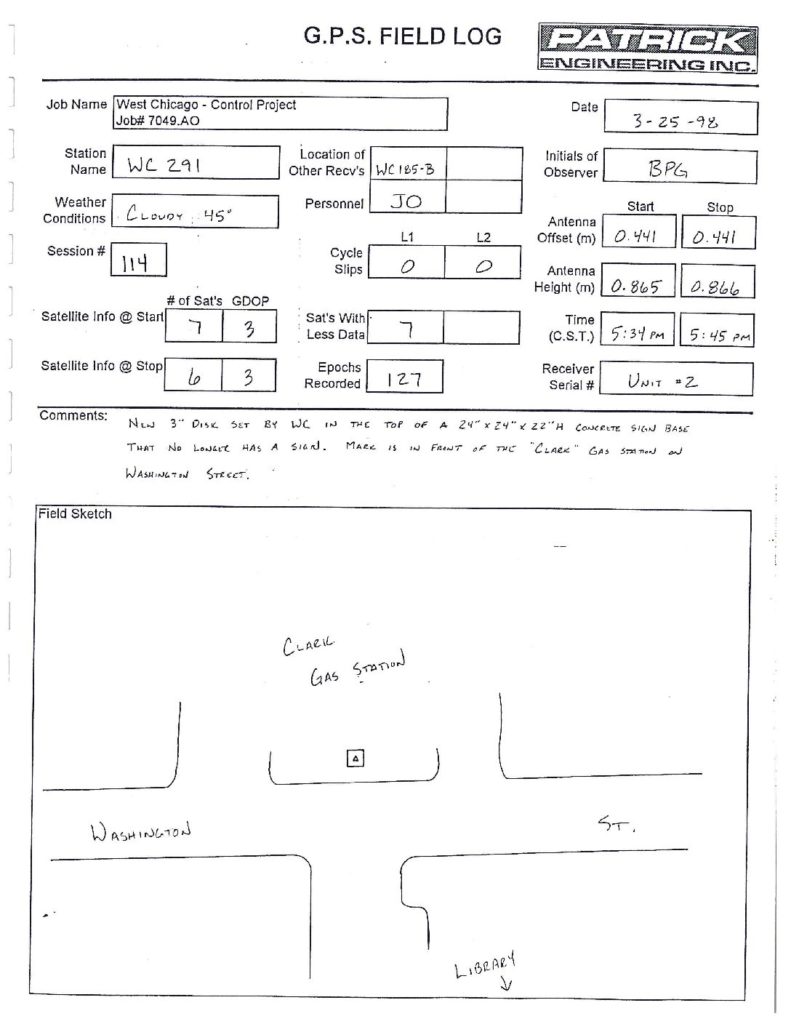 G.P.S. FIELD LOG
PATRICK
ENGINEERING INC.
Job Name West Chicago - Control Project
Job# 7049.AO
Date 3-25-98
Station Name WC 291
Location of Other Recv's WC185-B
Initials of Observer BPG
Weather Conditions Cloudy 45°
Personnel JO
Start Stop
Antenna Offset (m) 0.441 0.441
Session # 114
L1 L2
Cycle Slips 0 0
Antenna Height (m) 0.865 0.866
# of Sat's GDOP
Satellite Info @ Start 7 3
Sat's With Less Data 7
Time (C.S.T.) 5:34 PM 5:45 PM
Satellite Info @ Stop 6 3
Epochs Recorded 127
Receiver Serial # Unit #2
Comments: New 3" Disk set by WC in the top of a 24" x 24" x 22"H concrete sign base
that no longer has a sign. Mark is in front of the "Clark" Gas station on
Washington Street.
Field Sketch
Clark
Gas Station
Washington St.
Library